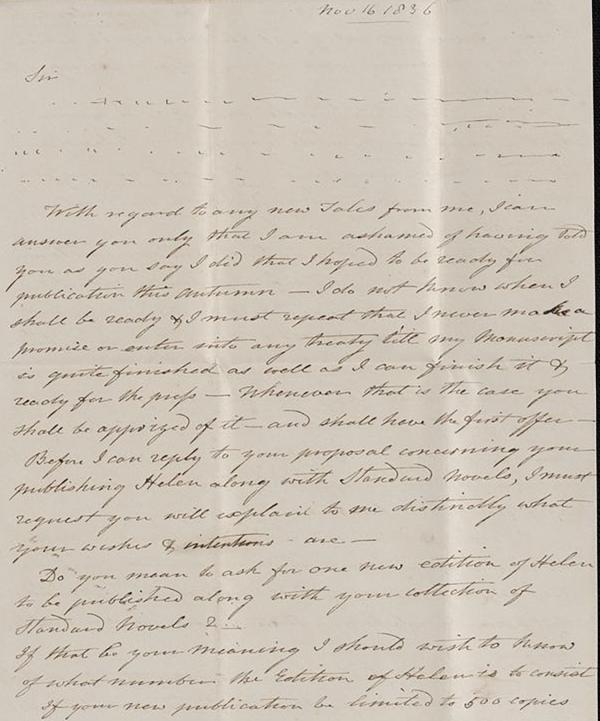 Nov 16 1836
Sir
With regard to any new Tales from me, I can
answer you only that I am ashamed of having told
you as you say I did that I hoped to be ready for
publication this autumn — I do not know when I
shall be ready & I must repeat that I never make a
promise or enter into any treaty till my Manuscript
is quite finished as well as I can finish it &
ready for the press — Whenever that is the case you
shall be apprized of it — and shall have the first offer —
Before I can reply to your proposal concerning your
publishing Helen along with Standard Novels, I must
request you will explain to me distinctly what
your wishes & intentions are —
Do you mean to ask for one new edition of Helen
to be published along with your collection of
Standard Novels ?
If that be your meaning I should wish to know
of what number the Edition of Helen is to consist
If your new publication be limited to 500 copies